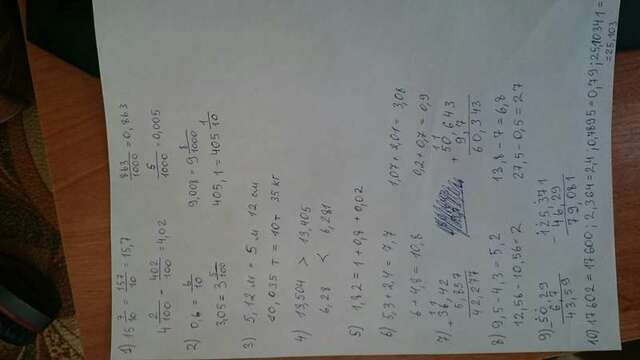 1) 15 7/10 = 157/10 = 15,7    863/1000 = 0,863
4 2/100 = 402/100 = 4,02    5/1000 = 0,005
2) 0,6 = 6/10    9,008 = 9 8/1000
3,05 = 3 5/100    405,1 = 405 1/10
3) 5,12 м = 5 м 12 см
10,035 т = 10 т 35 кг
4) 13,504 > 13,405
6,28 < 6,281
5) 1,82 = 1 + 0,8 + 0,02
6) 5,3 + 2,4 = 7,7    1,07 + 2,01 = 3,08
6 + 4,8 = 10,8    0,2 + 0,7 = 0,9
7) + 36,42    + 50,643
5,857    9,7
42,277    60,343
8) 9,5 - 4,3 = 5,2    13,8 - 7 = 6,8
12,56 - 10,56 = 2    27,5 - 0,5 = 27
9) - 50,29    - 125,371
6,7    46,29
43,59    79,081
10) 17602 = 17600 ; 2,364 = 2,4 ; 0,7895 = 0,79 ; 25,10341 =
= 25,103